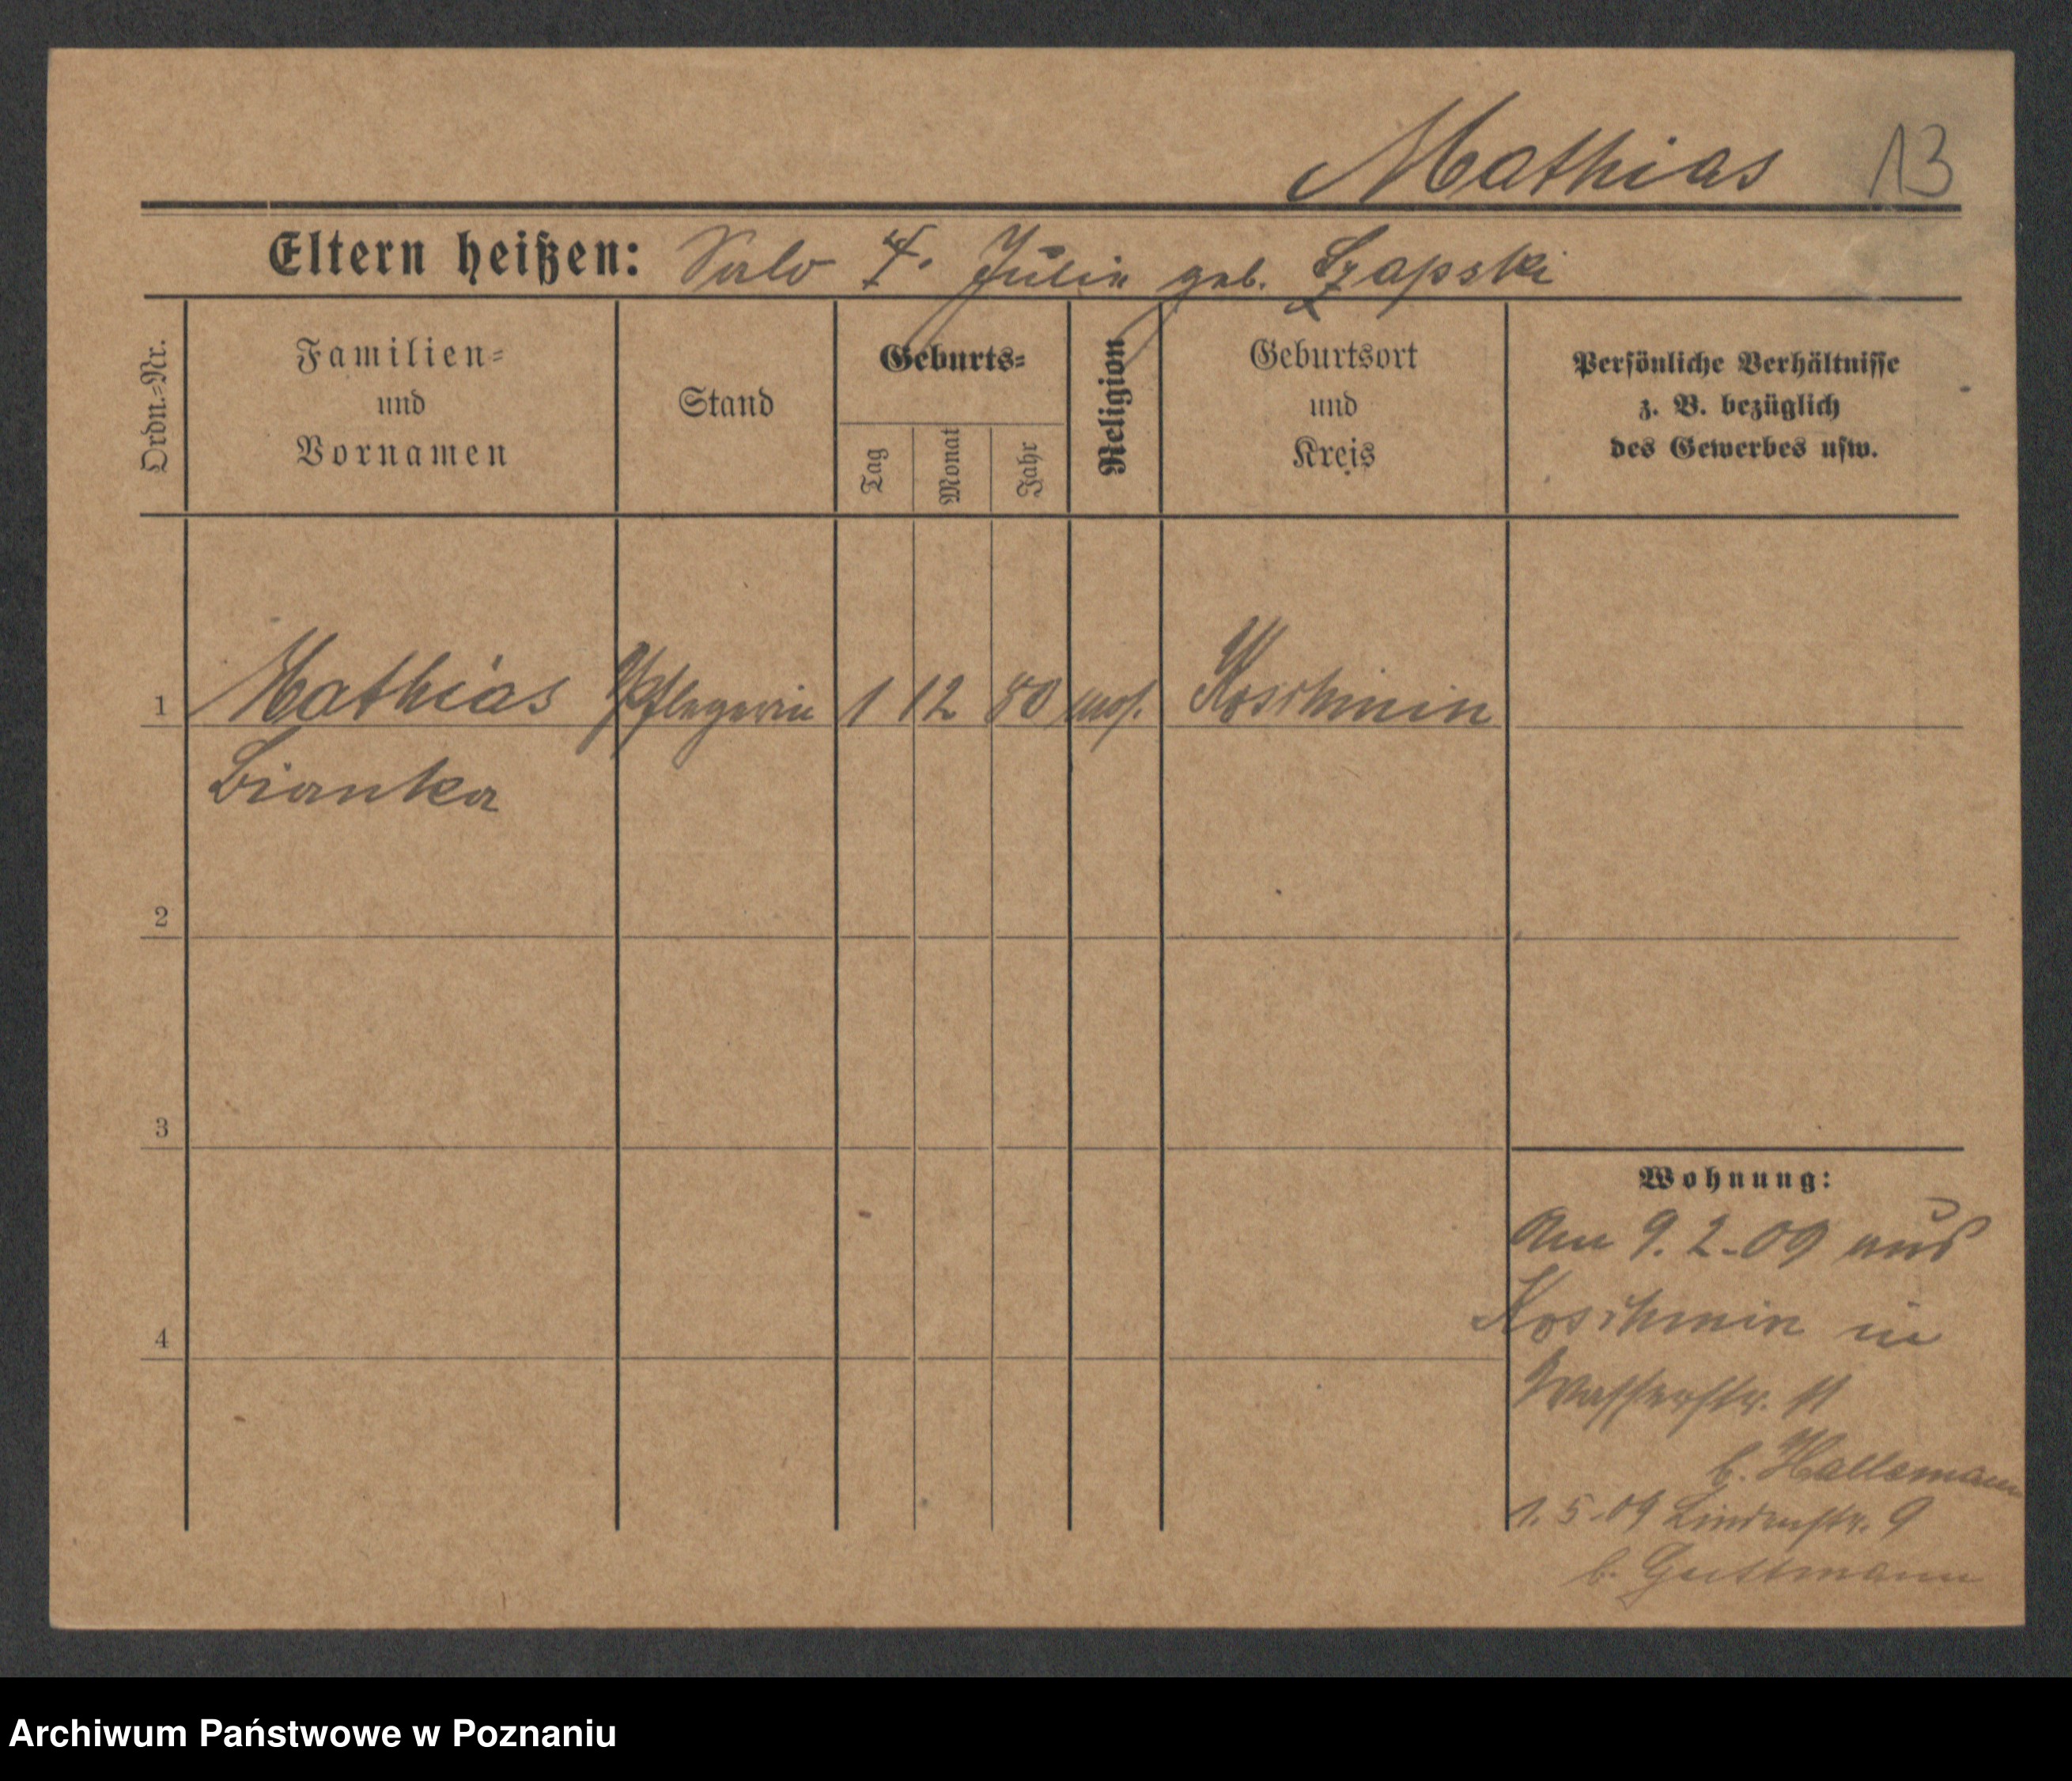 Mathias 13
Eltern heißen: Salo u. Julie geb. Szapski
Ordn.=Nr.
Familien=
und
Vornamen
Stand
Geburts=
Tag
Monat
Jahr
Religion
Geburtsort
und
Kreis
Persönliche Verhältnisse
z. B. bezüglich
des Gewerbes usw.
1 Mathias Pflegerin 1 12 80 mos. Koschmin
Bianka
2
3
4
Wohnung:
Am 9. 2. 09 aus
Koschmin in
Wasserstr. 11
b. Hallemann
1. 5. 09 Lindenstr. 9
b. Guttmann
Archiwum Państwowe w Poznaniu